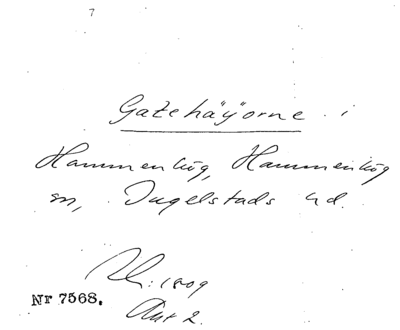 7
Gatehäÿorne i
Hammenhög, Hammenhög
sn, Ingelstads hd.
Nr 7568.